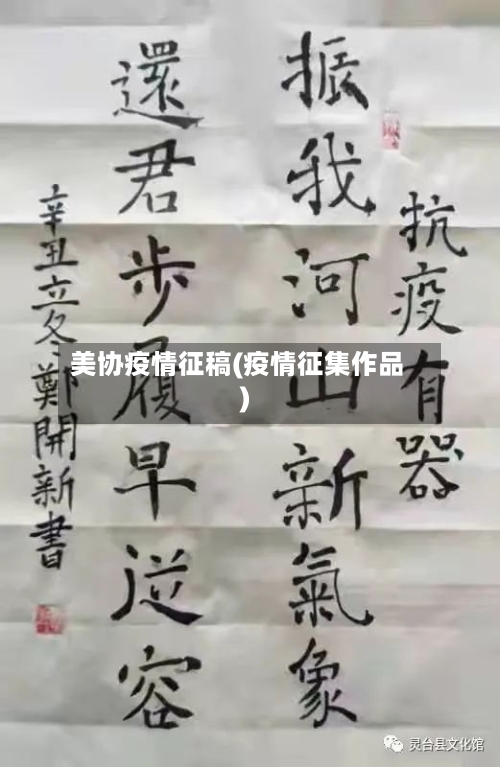 抗疫有器
振我河山新氣象
還君步履早從容
辛丑立冬鄭開新書
美协疫情征稿(疫情征集作品
)
灵台县文化馆